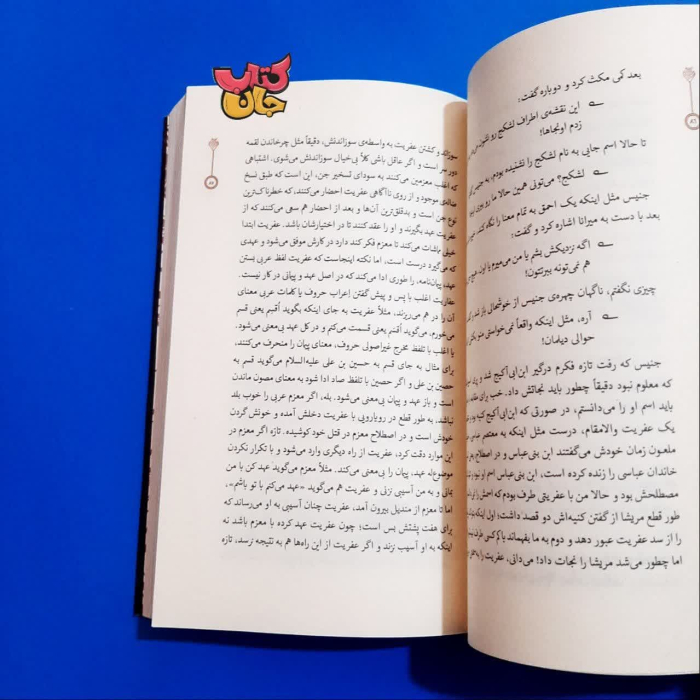 کتاب
جان
بعد کمی مکث کرد و دوباره گفت:
این نقشه‌ی اطراف لشکیج رو
زدم اونجاها!
تا حالا اسم جایی به نام لشکیج را نشنیده بودم، به جنیس
لشکیج؟ می‌تونی همین حالا ما رو
جنیس مثل اینکه یک احمق به تمام معنا را نگاه کند،
بعد با دست به میرانا اشاره کرد و گفت:
اگه نزدیکش بشم یا من می‌میرم یا اون،
هم نمی‌تونه ببرتتون!
چیزی نگفتم، ناگهان چهره‌ی جنیس از خوشحالی باز
آره، مثل اینکه واقعاً نمی‌خواستی
حوالی دیلمان!
جنیس که رفت تازه فکرم درگیر این‌ابی‌آکیج شد و
که معلوم نبود دقیقاً چطور باید نجاتش داد. خب برای
باید اسم او را می‌دانستم، در صورتی که این‌ابی‌آکیج کنیه بود
یک عفریت والامقام، درست مثل اینکه به معتصم
ملعون زمان خودش می‌گفتند ابن بنی‌عباس و در اصطلاح
خاندان عباسی را زنده کرده است، ابن بنی‌عباس اسم او نبود و
مصطلحش بود و حالا من با عفریتی طرف بودم که اسمش را
طور قطع مریشا از گفتن کنیه‌اش دو قصد داشت؛ اول اینکه
را از سد عفریت عبور دهد و دوم به ما بفهماند با کم کسی طرف
اما چطور می‌شد مریشا را نجات داد! می‌دانی، عفریت را به
سوزاند و کشتن عفریت به واسطه‌ی سوزاندنش، دقیقاً مثل چرخاندن لقمه
دور سر است و اگر عاقل باشی کلاً بی‌خیال سوزاندنش می‌شوی. اشتباهی
که اغلب معزمین می‌کنند به سودای تسخیر جن، این است که طبق نسخ
موجود و از روی ناآگاهی عفریت احضار می‌کنند، که خطرناک‌ترین
نوع جن است و بدقلق‌ترین آن‌ها و بعد از احضار هم سعی می‌کنند که از
عفریت عهد بگیرند و او را عقد کنند تا در اختیارشان باشد. عفریت ابتدا
خیلی ماشات می‌کند تا معزم فکر کند دارد در کارش موفق می‌شود و عهدی
که می‌گیرد درست است، اما نکته اینجاست که عفریت لفظ عربی بستن
عهد، پیمان‌نامه، را طوری ادا می‌کند که در اصل عهد و پیمانی در کار نیست.
عفاریت اغلب با پس و پیش گفتن اِعراب حروف یا کلمات عربی معنای
آن را در هم می‌ریزند، مثلاً عفریت به جای اینکه بگوید اُقسِم یعنی قسم
می‌خورم، می‌گوید اَقسَم یعنی قسمت می‌کنم و در کل عهد بی‌معنی می‌شود.
یا اغلب با تلفظ مخرج غیراصولی حروف، معنای پیمان را منحرف می‌کنند،
برای مثال به جای قسم به حسین بن علی علیه‌السلام می‌گوید قسم به
حصین بن علی و اگر حصین با تلفظ صاد ادا شود به معنای مصون ماندن
است و باز عهد و پیمان بی‌معنی می‌شود. بله، اگر معزم عربی را خوب بلد
نباشد، به طور قطع در رویارویی با عفریت دخلش آمده و خونش گردن
خودش است و در اصطلاح معزم در قتل خود کوشیده. تازه اگر معزم در
این موارد دقت کرد، عفریت از راه دیگری وارد می‌شود و با تکرار نکردن
موضوع‌له عهد، پیمان را بی‌معنی می‌کند. مثلاً معزم می‌گوید عهد کن با من
بمانی و به من آسیبی نزنی و عفریت هم می‌گوید «عهد می‌کنم با تو باشم»،
اما تا معزم از مندیل بیرون آمد، عفریت چنان آسیبی به او می‌رساند که
برای هفت پشتش بس است؛ چون عفریت عهد کرده با معزم باشد نه
اینکه به او آسیب نزند و اگر عفریت از این راه‌ها هم به نتیجه نرسد، تازه